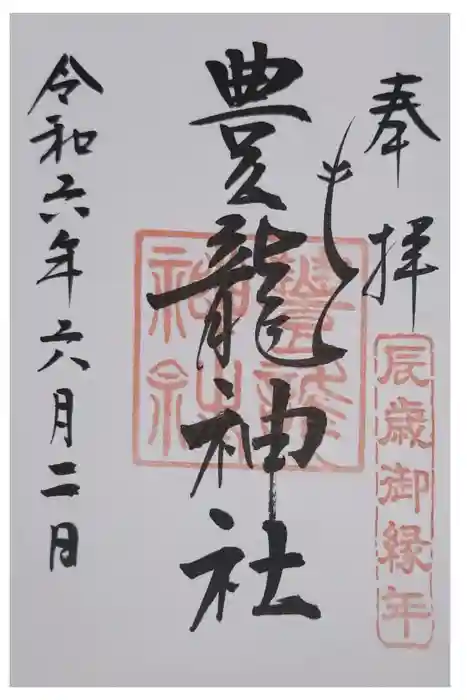 奉拝
辰歳御縁年
豊龍神社
豊龍神社
令和六年六月二日